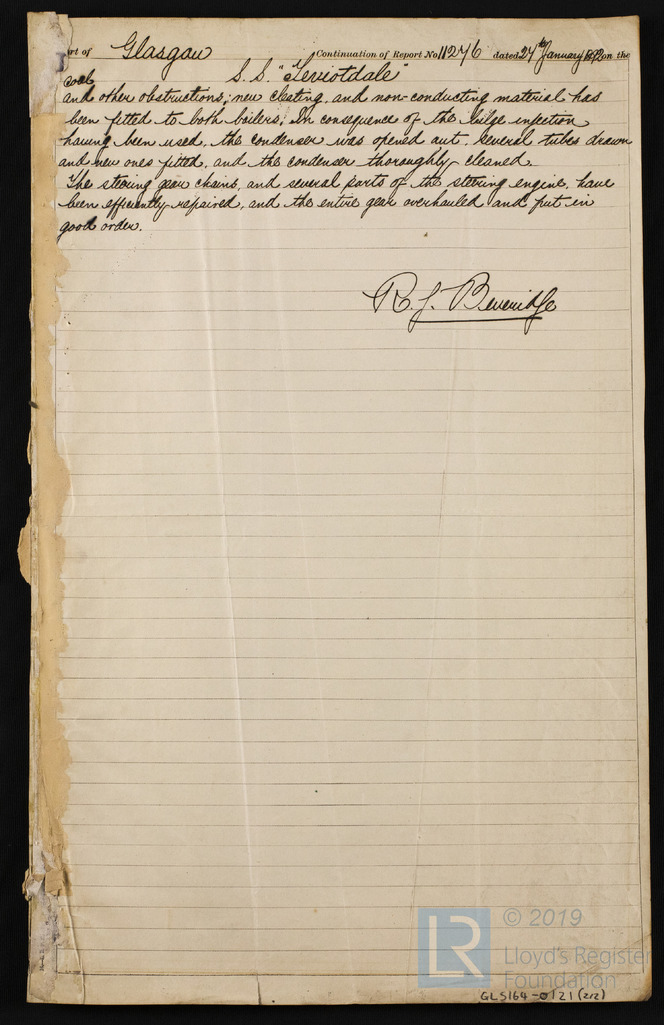 rt of Glasgow Continuation of Report No 11276 dated 24th January 1892 on the
S.S. "Teviotdale"
coal
and other obstructions; new cleating, and non-conducting material has
been fitted to both boilers; In consequence of the bilge injection
having been used, the condenser was opened out, several tubes drawn
and new ones fitted, and the condenser thoroughly cleaned.
The steering gear chains, and several parts of the steering engine, have
been efficiently repaired, and the entire gear overhauled and put in
good order.
R. J. Beveridge
LR © 2019
Lloyd's Register
Foundation
GLS164-0121 (2/2)